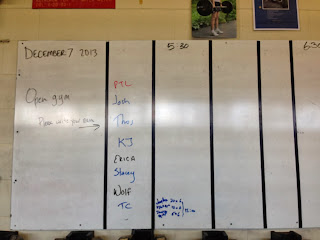 DECEMBER 7 2013
5:30
6:30
Open gym
Please write your name
PTL
Josh
Thos
KJ
ERICA
Stacey
Wolf
TC